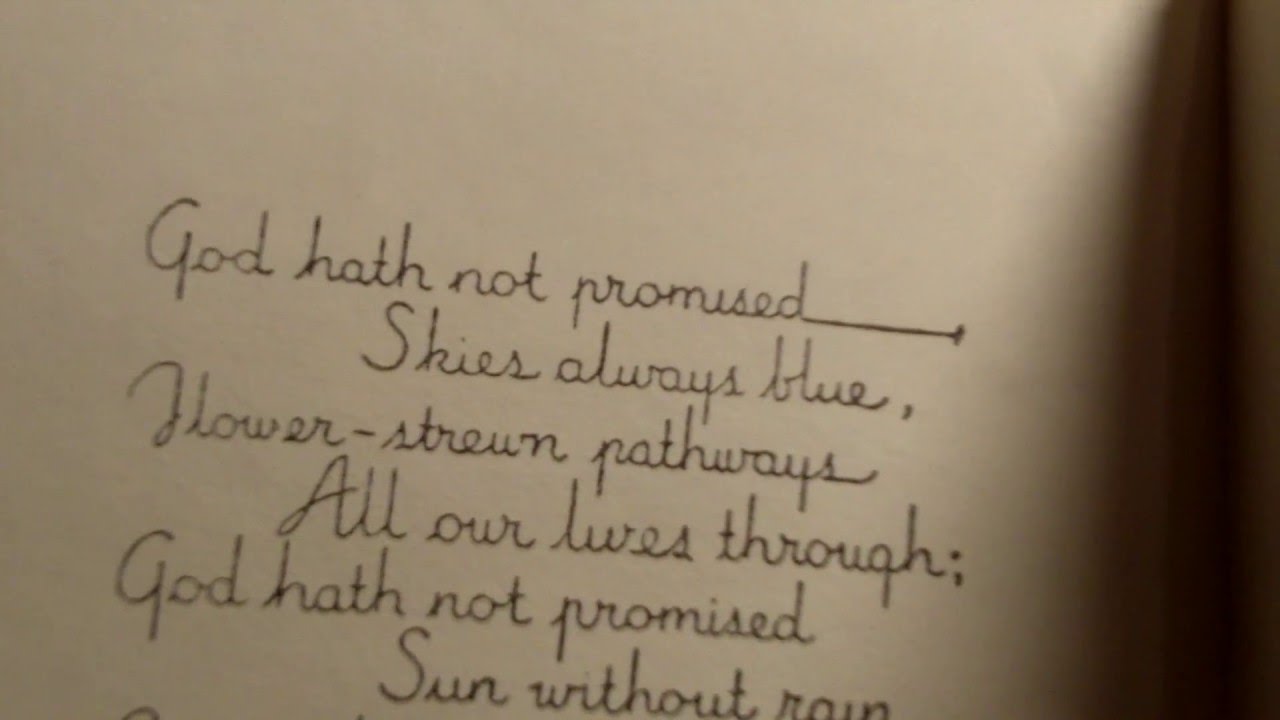 God hath not promised
Skies always blue,
Flower-strewn pathways
All our lives through;
God hath not promised
Sun without rain